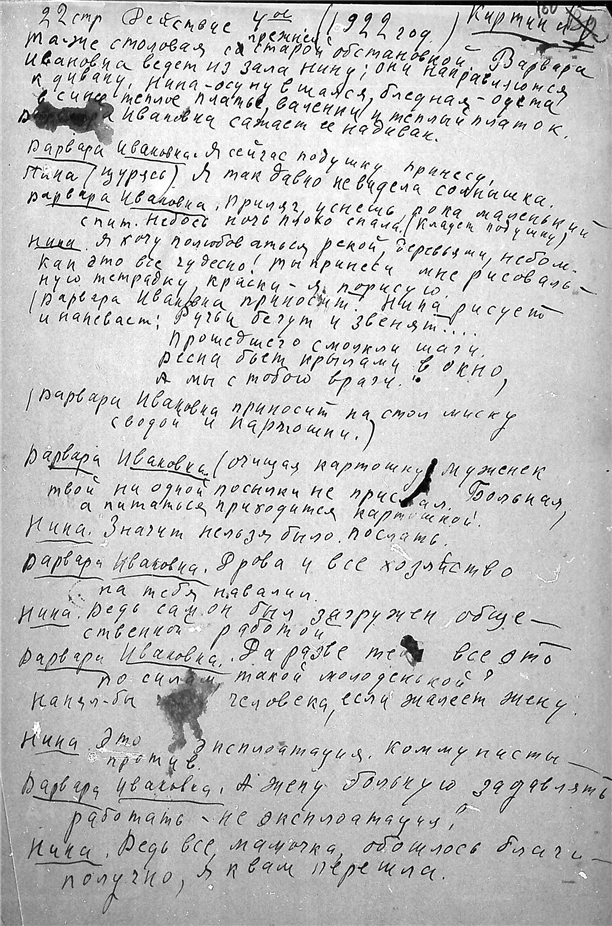 22 стр Действие 4ое (1922 год) Картина
Та-же столовая со старой прежней обстановкой. Варвара
Ивановна ведет из зала Нину, они направляются
к дивану. Нина-осунувшаяся, бледная-одета
в синее теплое платье, валенки и теплый платок.
Варвара Ивановна сажает ее на диван.
Варвара Ивановна. Я сейчас подушку принесу.
Нина (щурясь) Я так давно не видела солнышка.
Варвара Ивановна. Приляг, уснешь пока маленький
спит. Небось ночь плохо спала. (Кладет подушку)
Нина. Я хочу полюбоваться рекой, деревьями, небом-
как это все чудесно! Ты принеси мне рисоваль-
ную тетрадку, краски-я порисую.
(Варвара Ивановна приносит. Нина рисует
и напевает: Ручьи бегут и звенят....
Прошедшего смолкли шаги.
Весна бьет крылами в окно,
А мы с тобою враги.
(Варвара Ивановна приносит на стол миску
с водой и картошки.)
Варвара Ивановна (очищая картошку) Муженек
твой ни одной посылки не прислал. Больная,
а питаться приходится картошкой!
Нина. Значит нельзя было. послать.
Варвара Ивановна. Дрова и все хозяйство
на тебя навалил.
Нина. Ведь сам он был загружен обще-
ственной работой
Варвара Ивановна. Да разве тебе все это
по силам такой молоденькой?
Нанял-бы человека, если жалеет жену.
Нина. Это эксплоатация. Коммунисты-
против.
Варвара Ивановна. А жену больную заставлять
работать - не эксплоатация?
Нина. Ведь все, мамочка, обошлось благо-
получно, я к вам перешла.